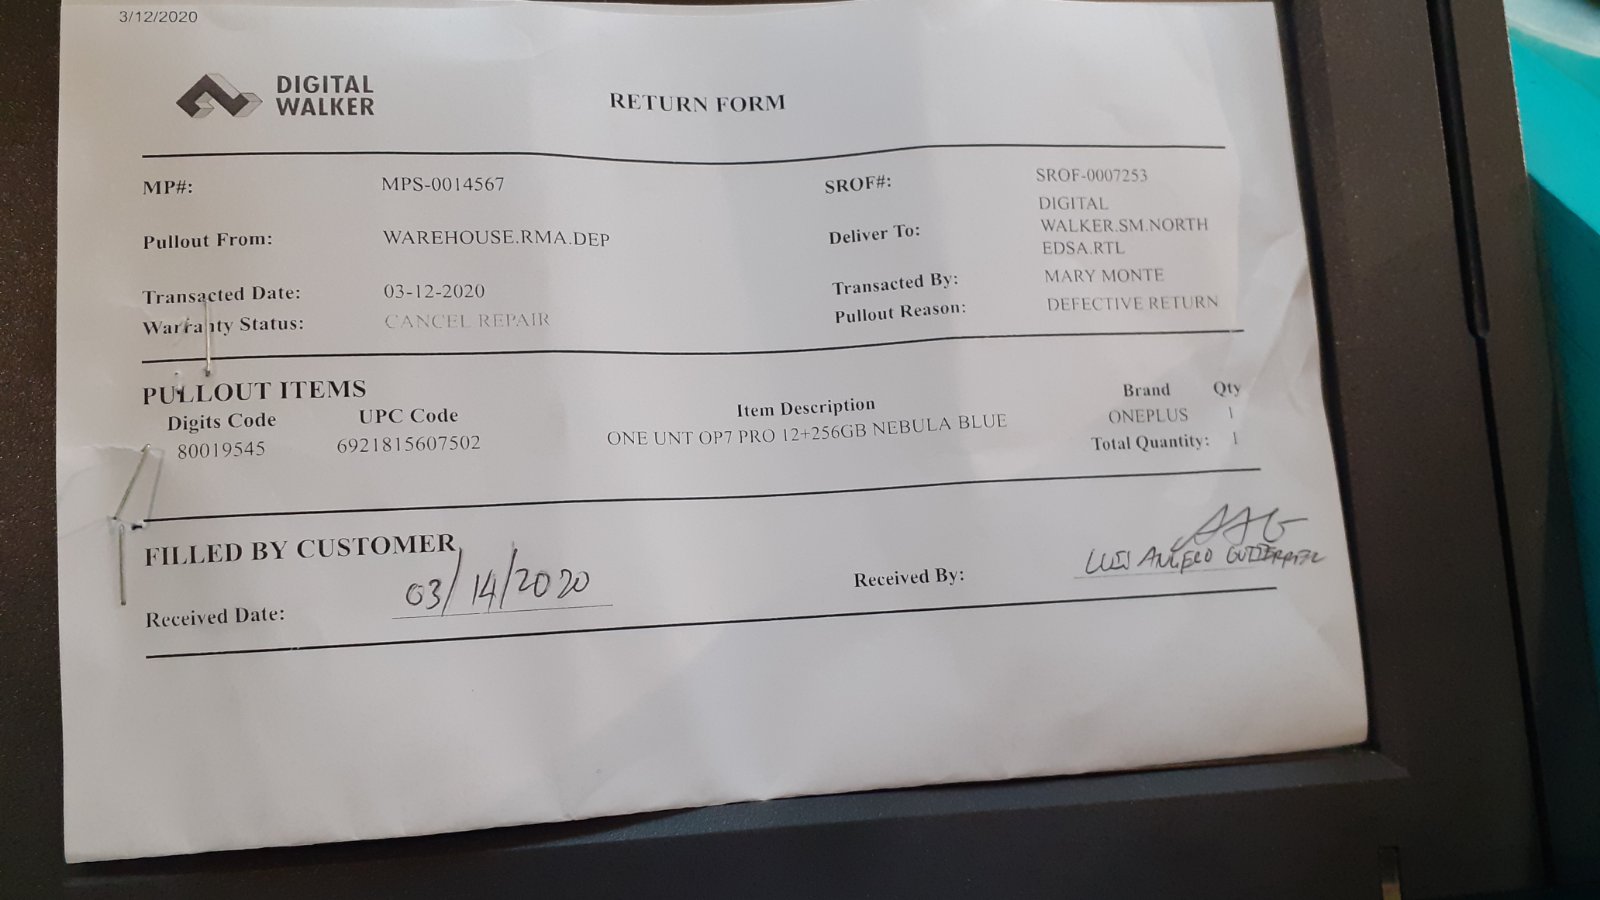 3/12/2020
DIGITAL
WALKER
RETURN FORM
MP#: MPS-0014567 SROF#: SROF-0007253
Pullout From: WAREHOUSE.RMA.DEP Deliver To: DIGITAL
WALKER.SM.NORTH
EDSA.RTL
Transacted Date: 03-12-2020 Transacted By: MARY MONTE
Warranty Status: CANCEL REPAIR Pullout Reason: DEFECTIVE RETURN
PULLOUT ITEMS
Digits Code UPC Code Item Description Brand Qty
80019545 6921815607502 ONE UNT OP7 PRO 12+256GB NEBULA BLUE ONEPLUS 1
Total Quantity: 1
FILLED BY CUSTOMER
Received Date: 03/14/2020 Received By: LUIS ANGELO GUTIERREZ